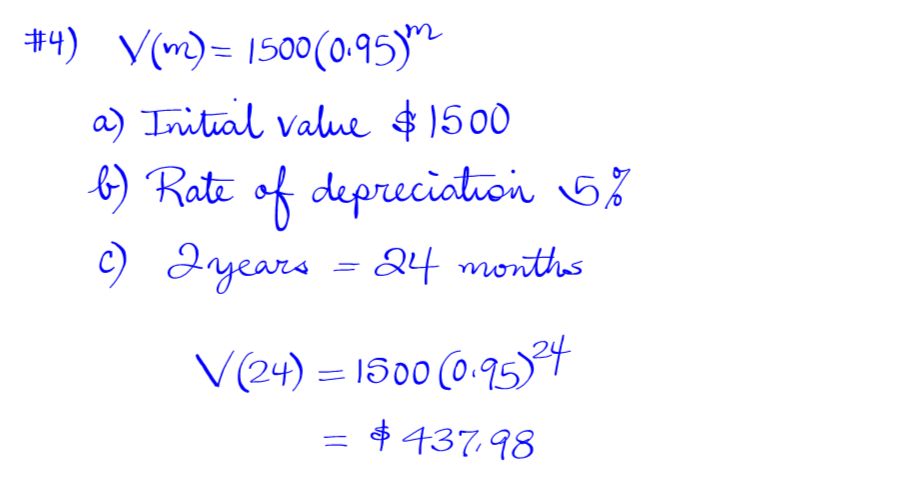 #4) V(m) = 1500(0.95)^m
a) Initial value $1500
b) Rate of depreciation 5%
c) 2 years = 24 months
V(24) = 1500(0.95)^24
= $437.98